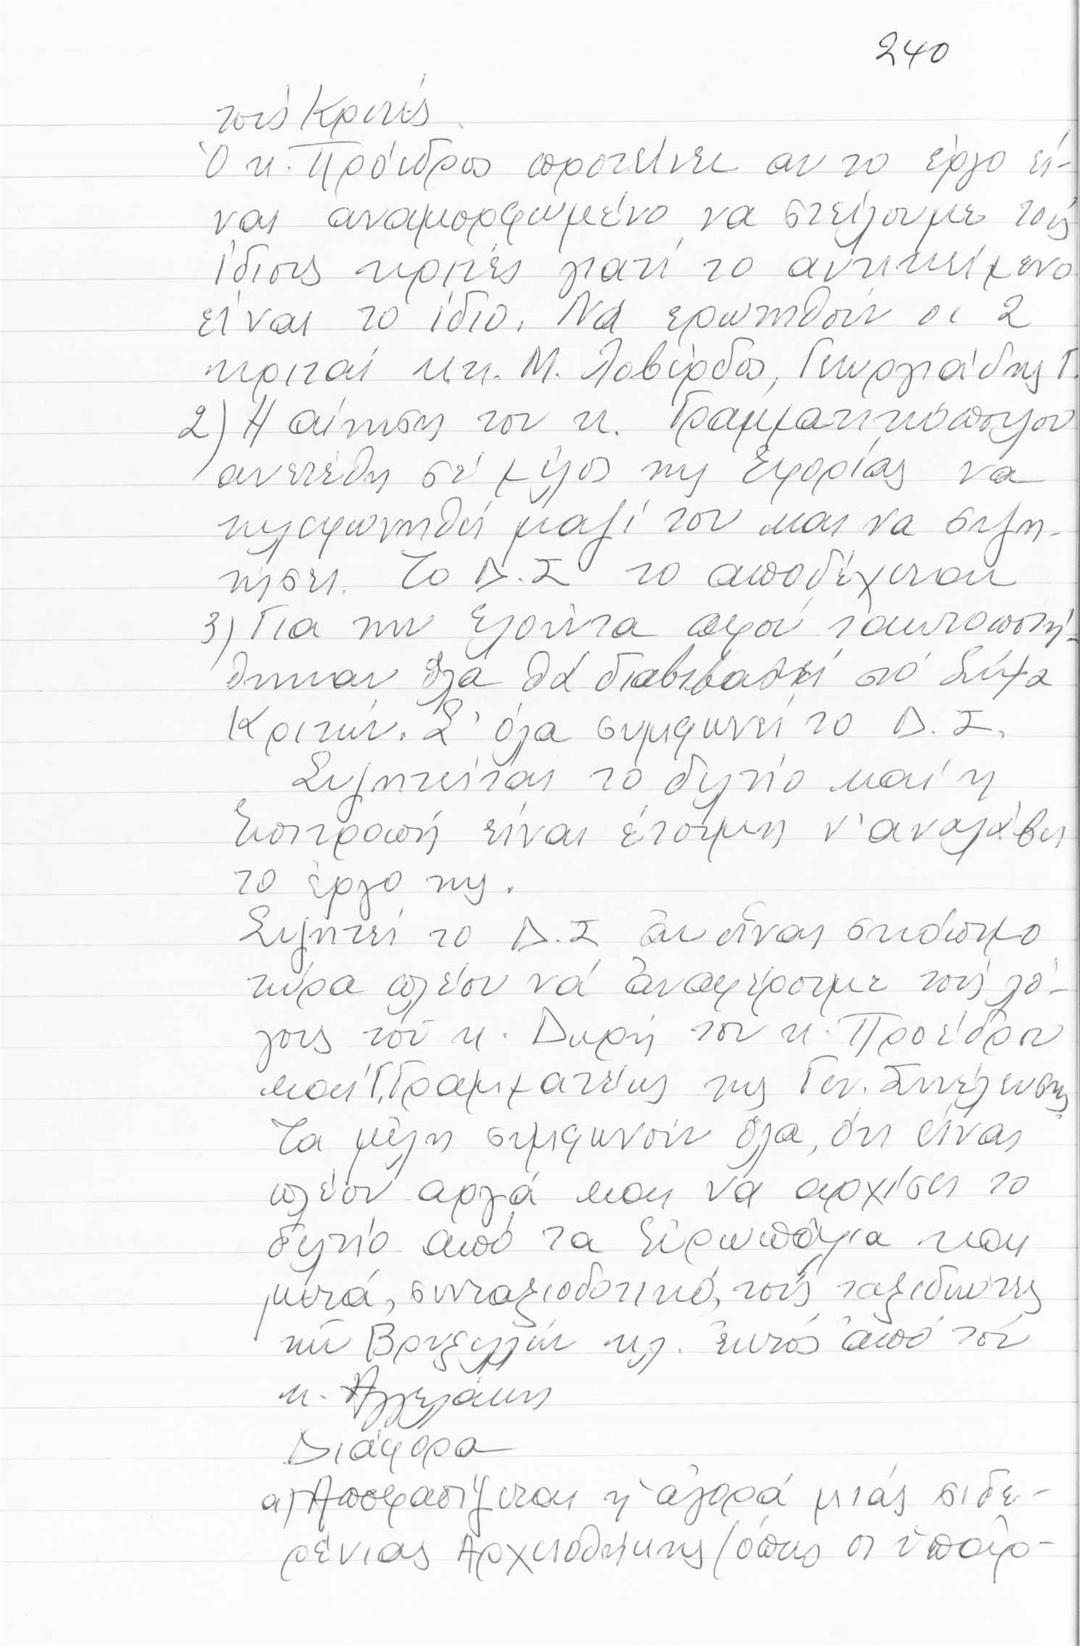 240
τούς Κριτές.
Ὁ κ. Πρόεδρος προτείνει αν το έργο εί-
ναι αναμορφωμένο να στείλουμε τούς
ίδιους κριτές γιατί το αντικείμενο
είναι το ίδιο. Νά ερωτηθούν οι 2
κριταί κ.κ. Μ. Λοβέρδος, Γεωργιάδης Γ.
2) Η αίτηση του κ. Γραμματικόπουλου
ανετέθη σέ μέλος της Εφορίας να
τηλεφωνηθεί μαζί του και να συζη-
τήσει. Το Δ.Σ το αποδέχεται
3) Για την Ελούντα αφού τακτοποιή-
θηκαν όλα θά διαβιβασθεί στό Σώμα
Κριτών. Σ' όλα συμφωνεί το Δ.Σ.
Συζητείται το δελτίο καί η
Επιτροπή είναι έτοιμη ν' αναλάβει
το έργο της.
Συζητεί το Δ.Σ ἄν εἶναι σκόπιμο
τώρα πλέον νά ἀναφέρουμε τούς λό-
γους τοῦ κ. Δικρή του κ. Προέδρου
και Γ. Γραμματέως της Γεν. Συνέλευσης
Τα μέλη συμφωνούν όλα, ότι είναι
πλέον αργά και να αρχίσει το
δελτίο από τα Εὐρωπάλια και
μετά, συνταξιοδοτικό, τούς ταξιδιώτες
τῶν Βρυξελλῶν κλ. ἐκτός ἀπό τόν
κ. Αγγελάκη
Διάφορα
α) Αποφασίζεται ἡ ἀγορά μιάς σιδε-
ρένιας Αρχειοθήκης (όπως οι ὑπάρ-